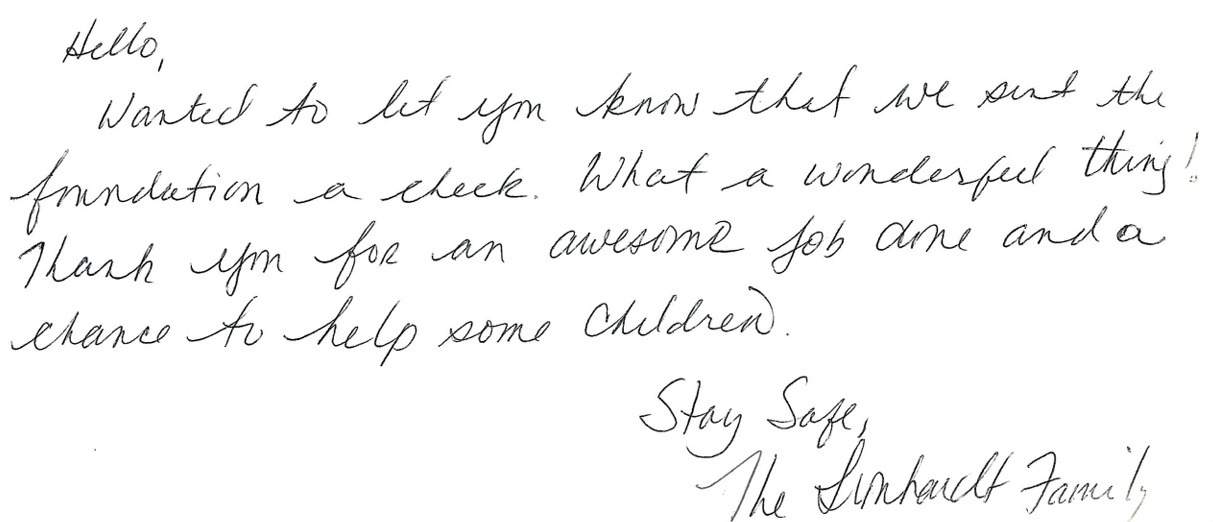 Hello,
Wanted to let you know that we sent the
foundation a check. What a wonderful thing!
Thank you for an awesome job done and a
chance to help some children.
Stay Safe,
The Linhardt Family